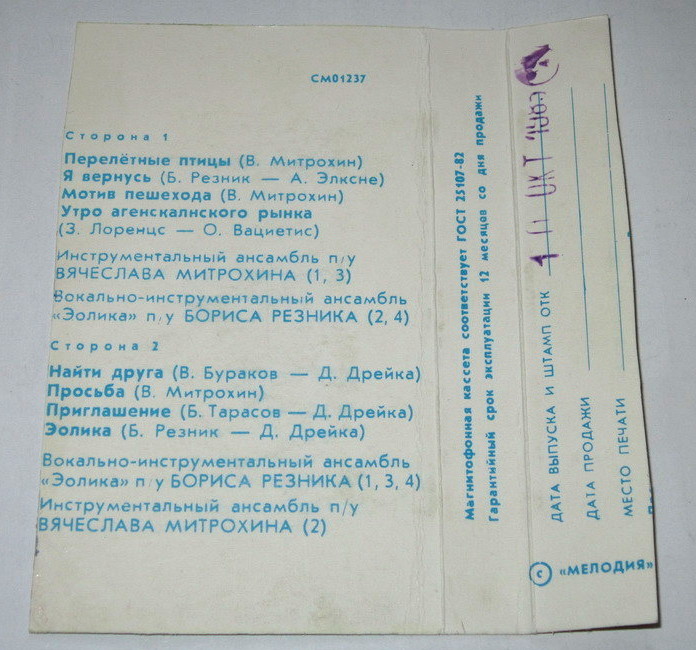 СМ01237
Сторона 1
Перелётные птицы (В. Митрохин)
Я вернусь (Б. Резник — А. Элксне)
Мотив пешехода (В. Митрохин)
Утро агенскалнского рынка
(З. Лоренцс — О. Вациетис)
Инструментальный ансамбль п/у
ВЯЧЕСЛАВА МИТРОХИНА (1, 3)
Вокально-инструментальный ансамбль
«Эолика» п/у БОРИСА РЕЗНИКА (2, 4)
Сторона 2
Найти друга (В. Бураков — Д. Дрейка)
Просьба (В. Митрохин)
Приглашение (Б. Тарасов — Д. Дрейка)
Эолика (Б. Резник — Д. Дрейка)
Вокально-инструментальный ансамбль
«Эолика» п/у БОРИСА РЕЗНИКА (1, 3, 4)
Инструментальный ансамбль п/у
ВЯЧЕСЛАВА МИТРОХИНА (2)
Магнитофонная кассета соответствует ГОСТ 25107-82
Гарантийный срок эксплуатации 12 месяцев со дня продажи
ДАТА ВЫПУСКА И ШТАМП ОТК ОКТ
ДАТА ПРОДАЖИ
МЕСТО ПЕЧАТИ
© «МЕЛОДИЯ»